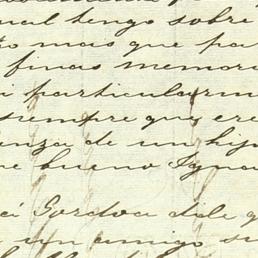 ual tengo sobre
o mas que pa
finas memori
i particularm
siempre que cre
enza de un hijo
e bueno Igna
cí Gordoa dile q
un amigo su